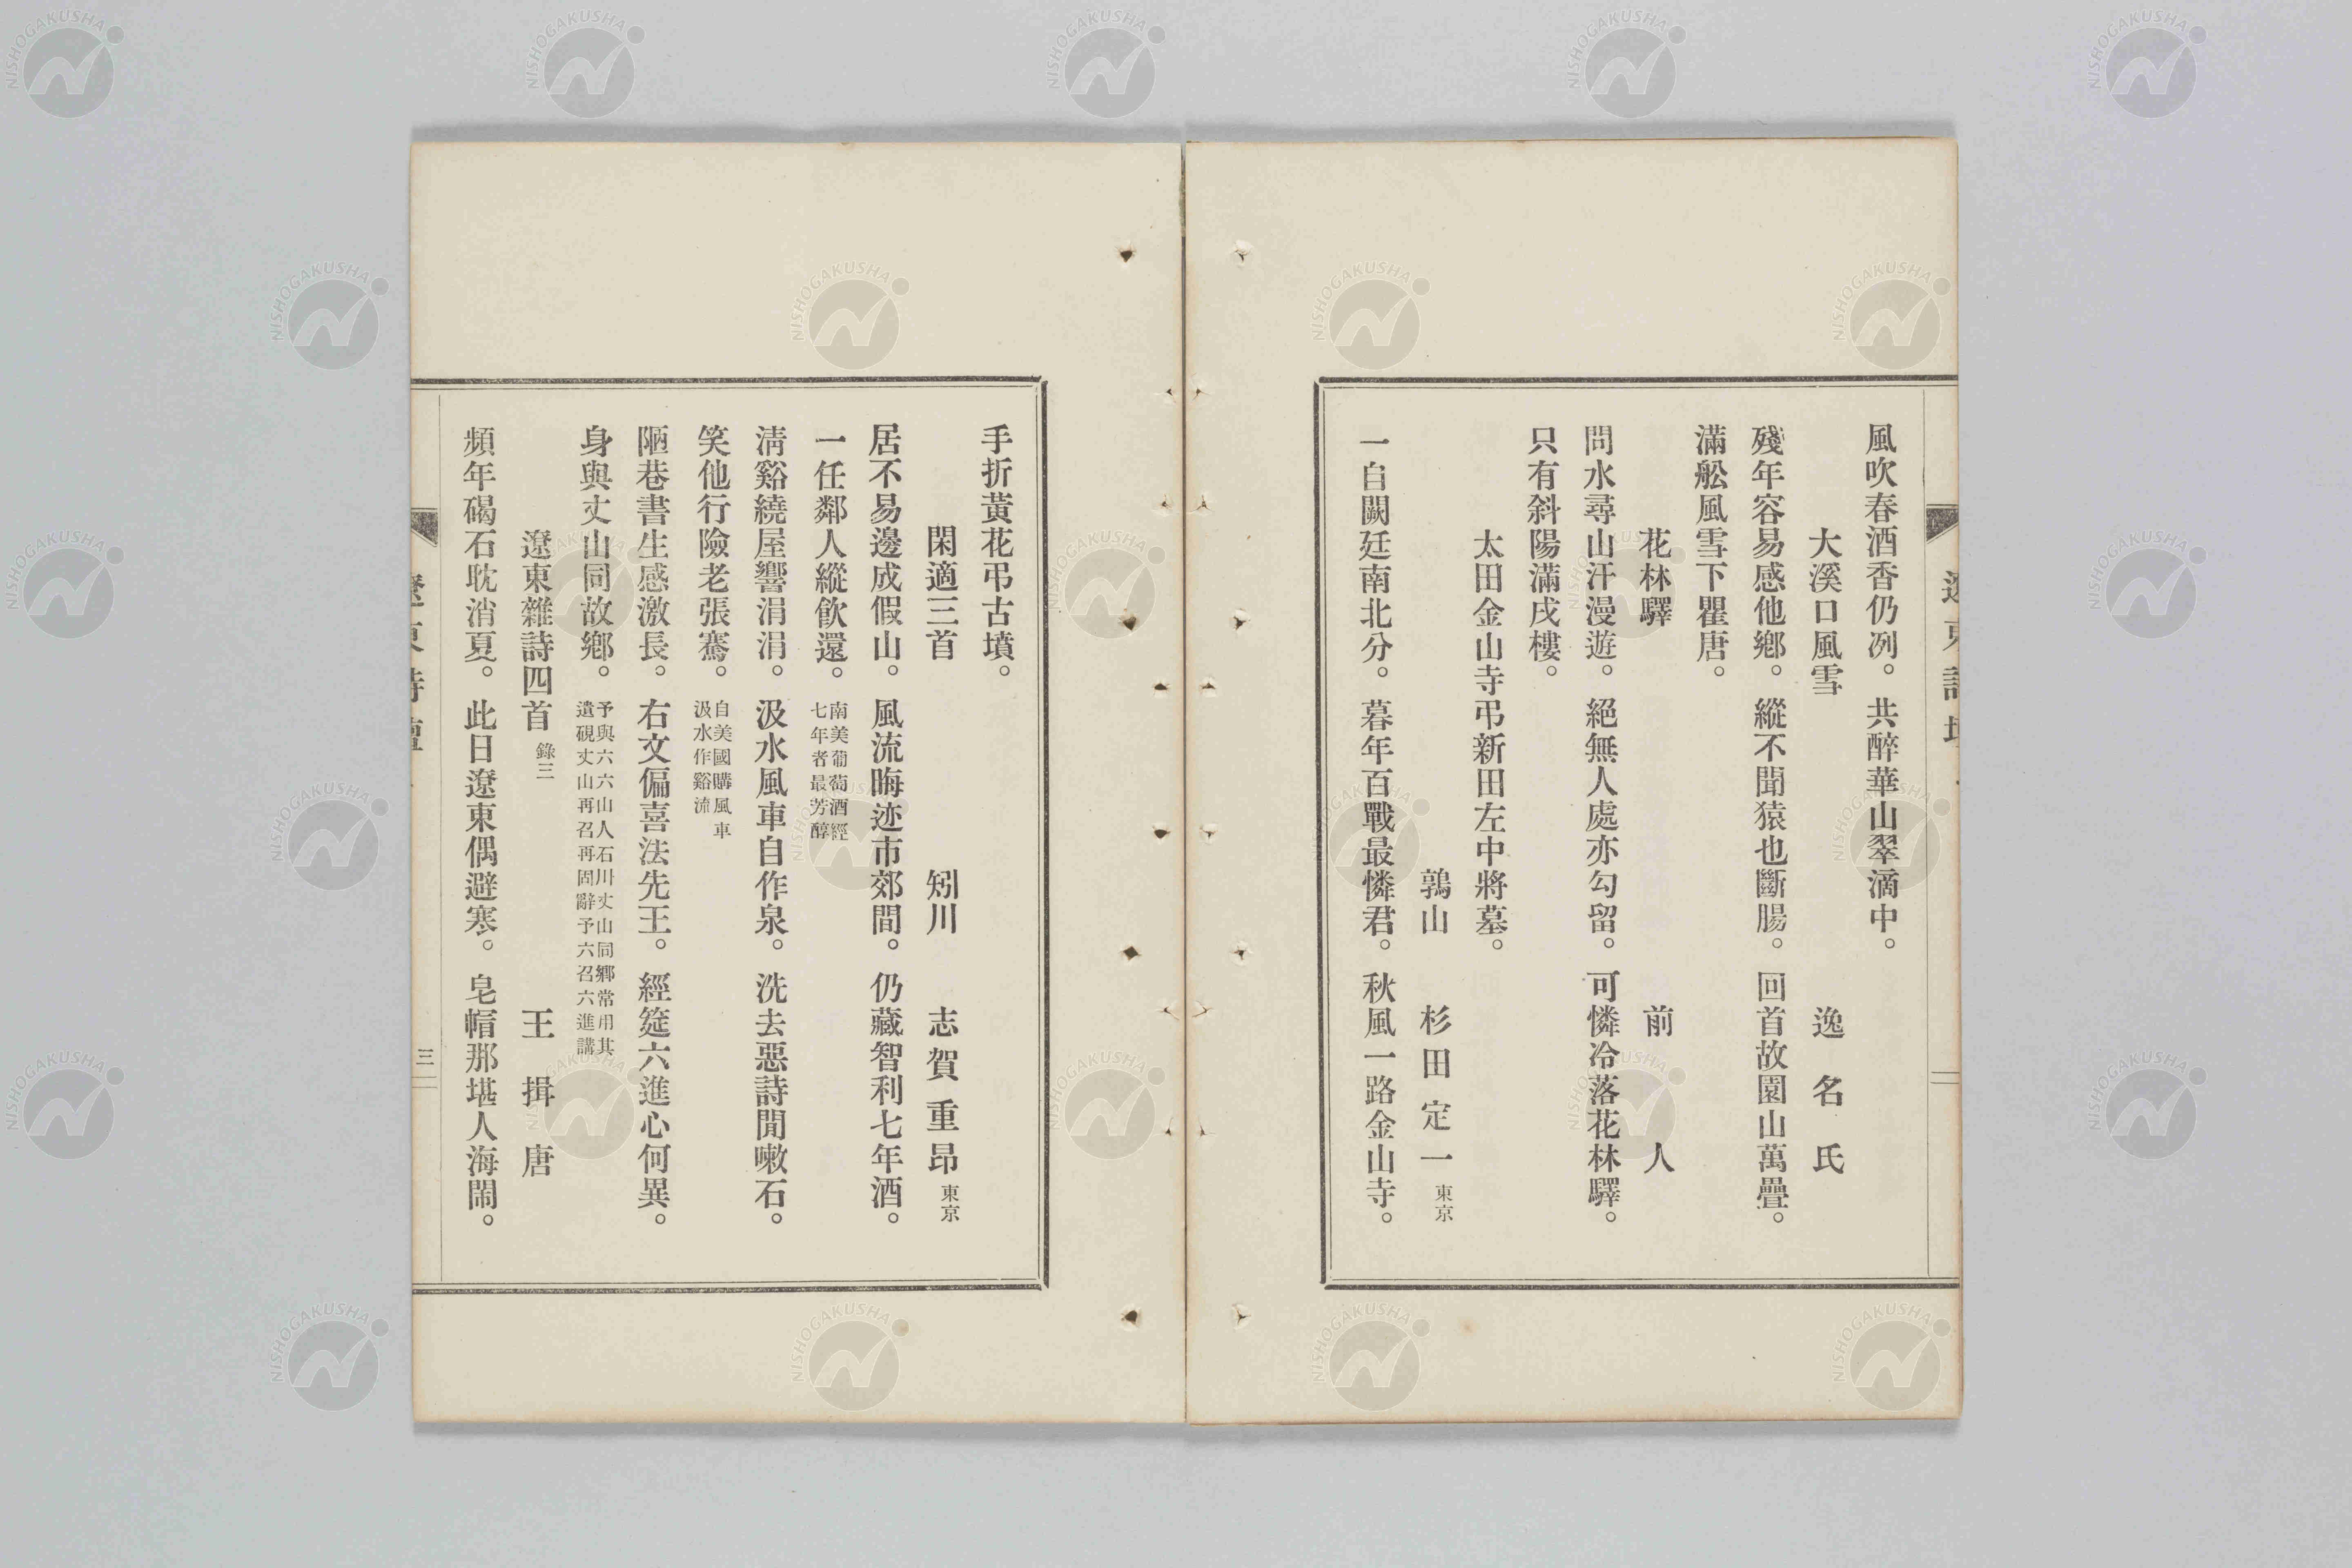 風吹春酒香仍冽。共醉華山翠滴中。
大溪口風雪　逸名氏
殘年容易感他鄕。縱不聞猿也斷腸。回首故園山萬疊。
滿舩風雪下瞿唐。
花林驛　前人
問水尋山汗漫遊。絕無人處亦勾留。可憐冷落花林驛。
只有斜陽滿戍樓。
太田金山寺弔新田左中將墓。
鶉山　杉田定一 東京
一自闕廷南北分。暮年百戰最憐君。秋風一路金山寺。
手折黃花弔古墳。
閑適三首　矧川　志賀重昂 東京
居不易邊成假山。風流晦迹市郊間。仍藏智利七年酒。
一任鄰人縱飮還。 南美葡萄酒經
七年者最芳醇
淸谿繞屋響涓涓。汲水風車自作泉。洗去惡詩閒嗽石。
笑他行險老張騫。 自美國購風車
汲水作谿流
陋巷書生感激長。右文偏喜法先王。經筵六進心何異。
身與丈山同故鄕。 予與六六山人石川丈山同鄕常用其
遺硯丈山再召再固辭予六召六進講
遼東雜詩四首 錄三　王揖唐
頻年碣石耽消夏。此日遼東偶避寒。皂帽那堪人海鬧。
遼東詩壇
三
NISHOGAKUSHA